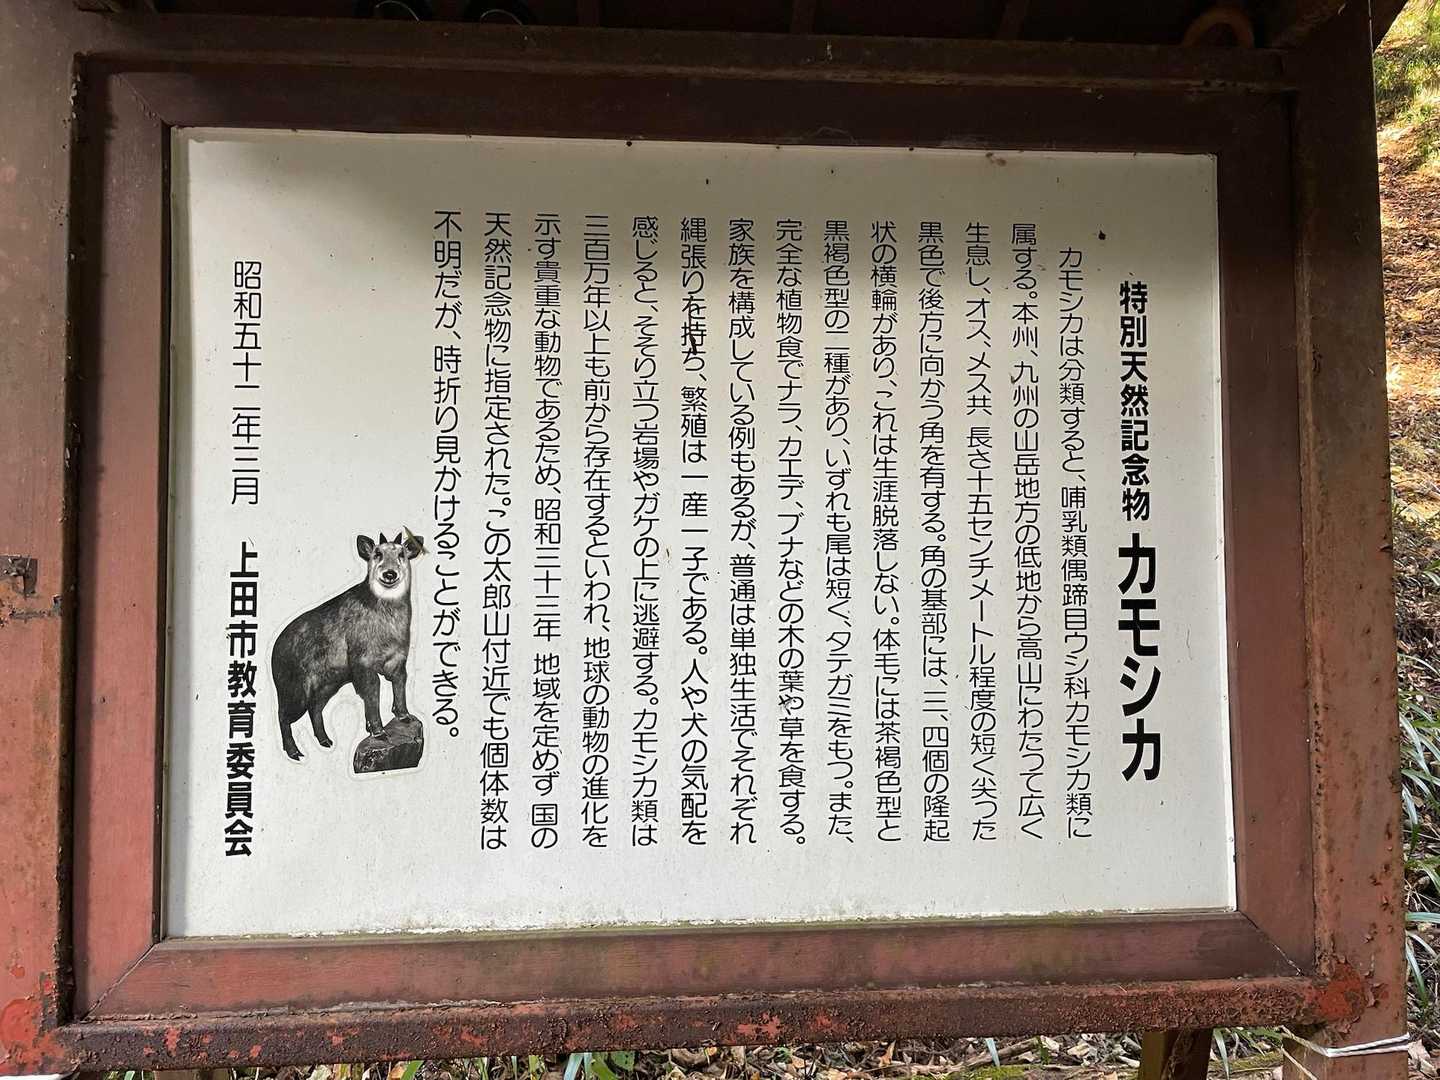 特別天然記念物 カモシカ
カモシカは分類すると、哺乳類偶蹄目ウシ科カモシカ類に
属する。本州、九州の山岳地方の低地から高山にわたって広く
生息し、オス、メス共、長さ十五センチメートル程度の短く尖った
黒色で後方に向かう角を有する。角の基部には、三、四個の隆起
状の横輪があり、これは生涯脱落しない。体毛には茶褐色型と
黒褐色型の二種があり、いずれも尾は短く、タテガミをもつ。また、
完全な植物食でナラ、カエデ、ブナなどの木の葉や草を食する。
家族を構成している例もあるが、普通は単独生活でそれぞれ
縄張りを持ち、繁殖は一産一子である。人や犬の気配を
感じると、そそり立つ岩場やガケの上に逃避する。カモシカ類は
三百万年以上も前から存在するといわれ、地球の動物の進化を
示す貴重な動物であるため、昭和三十三年 地域を定めず 国の
天然記念物に指定された。この太郎山付近でも個体数は
不明だが、時折り見かけることができる。
昭和五十二年三月 上田市教育委員会